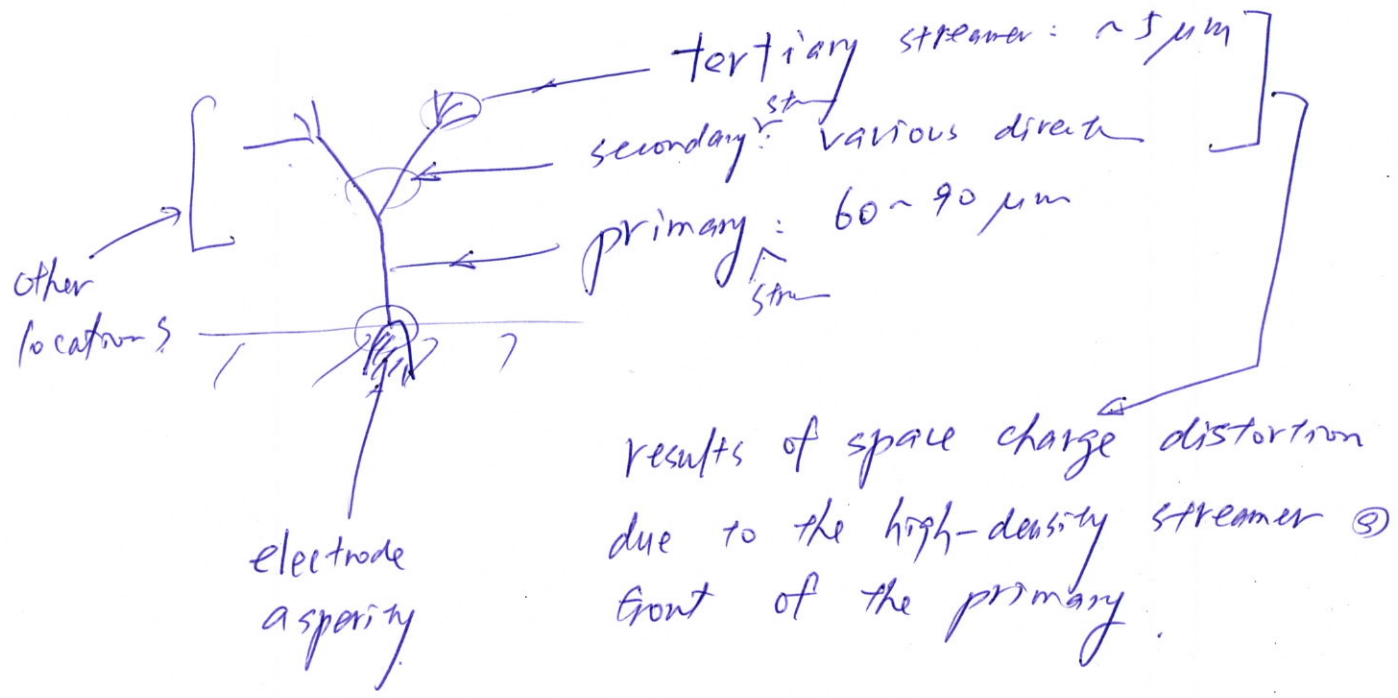 tertiary streamer: ~5 μm
secondary str: various direct
primary str: 60~90 μm
other
locations
electrode
asperity
results of space charge distortion
due to the high-density streamer @
front of the primary.